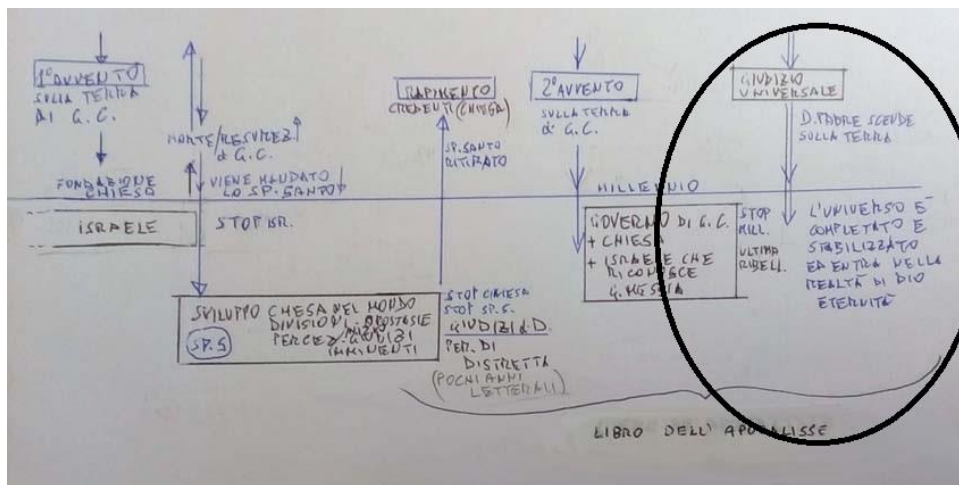 1° AVVENTO
SULLA TERRA
DI G. C.
FONDAZIONE
CHIESA
ISRAELE
MORTE/RESUREZ.
di G.C.
VIENE MANDATO
LO SP. SANTO
STOP ISR.
SVILUPPO CHIESA NEL MONDO
DIVISIONI - APOSTASIE
PERCEZ. GIUDIZI
IMMINENTI
SP. S
RAPIMENTO
CREDENTI (CHIESA)
SP. SANTO
RITIRATO
STOP CHIESA
STOP SP. S.
GIUDIZI di D.
PER. DI
DISTRETTA
(POCHI ANNI
LETTERALI)
2° AVVENTO
SULLA TERRA
di G. C.
MILLENNIO
GOVERNO DI G. C.
+ CHIESA
+ ISRAELE CHE
RICONOSCE
MESSIA
STOP
MILL.
ULTIMA
RIBELL.
GIUDIZIO
UNIVERSALE
D. PADRE SCENDE
SULLA TERRA
L'UNIVERSO È
COMPLETATO E
STABILIZZATO
ED ENTRA NELLA
REALTÀ DI DIO
ETERNITÀ
LIBRO DELL'APOCALISSE